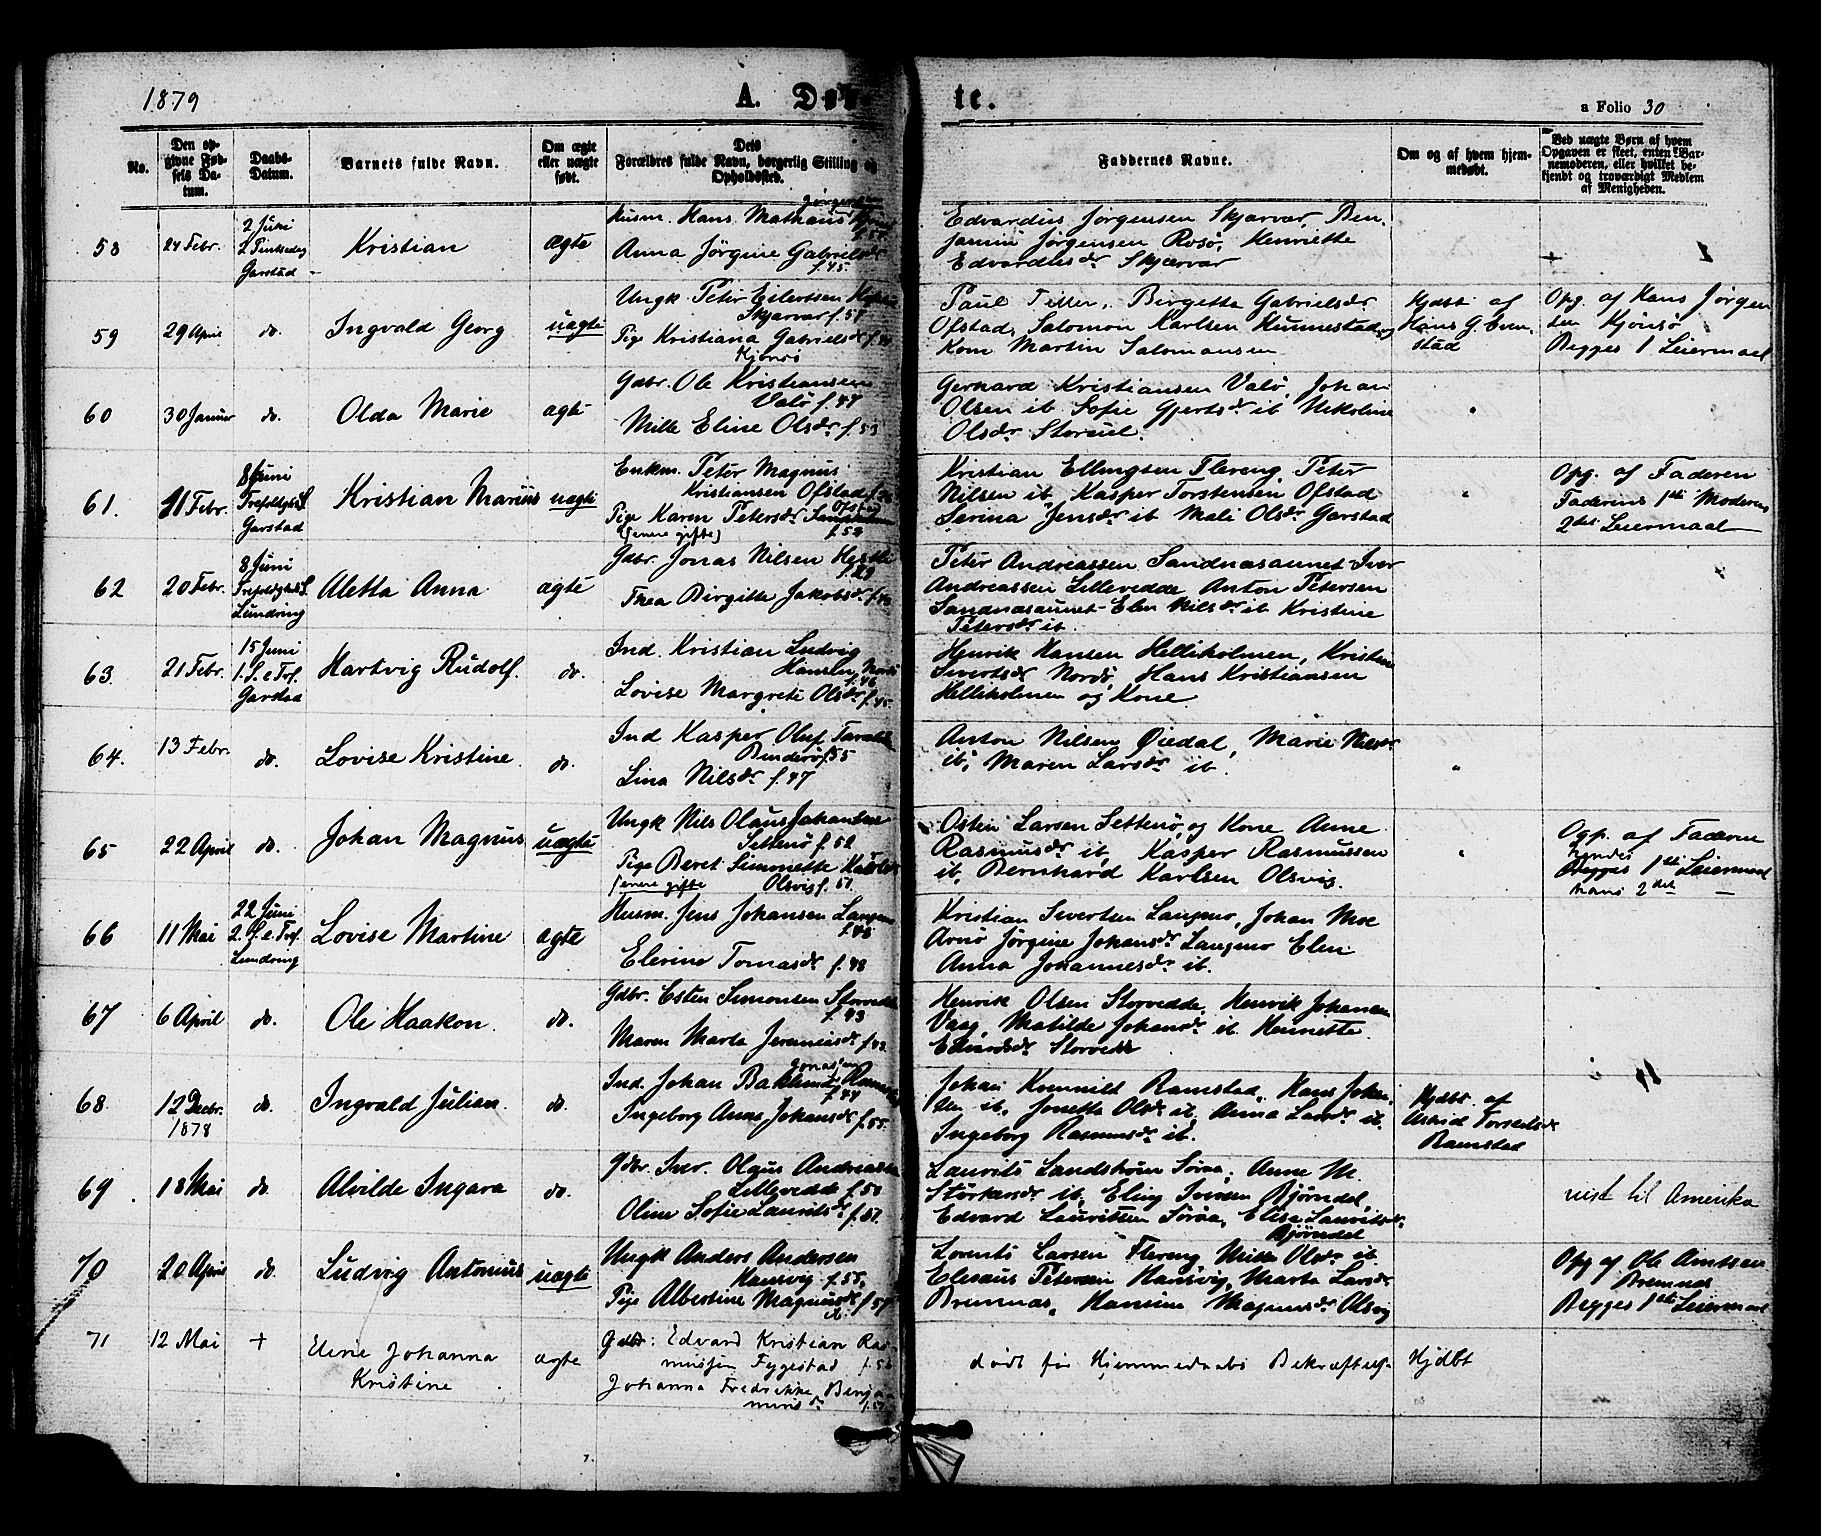 1879
A. Døbte.
a Folio 30
No.
Den opgivne Fødsels Datum.
Daabs-Datum.
Barnets fulde Navn.
Om ægte eller uægte født.
Dets Forældres fulde Navn, borgerlig Stilling og Opholdssted.
Faddernes Navne.
Om og af hvem hjemmedøbt.
Ved uægte Børn af hvem Opgaven er skeet, enten Barnemoderen, eller hvilket bekjendt og troværdigt Medlem af Menigheden.
58
24 Febr.
2 Juni
2 Pintsedag
Garstad
Kristian
ægte
Husm. Hans Mathias
Anna Jørgine Gabrielsdr
f. 45.
Edvardus Jørgensen Skjærvær, Ben-
jamin Jørgensen Rosø, Henriette
Edvardusdr Skjærvær
59
29 April
do.
Ingvald Georg
uægte
Ungk Peter Eilertsen
Skjærvær f. 58
Pige Kristiana Gabrielsdr
Kjønsø
Paul Tiller, Birgitta Gabrielsdr
Ofstad, Salomon Karlsen Hunnestad og
Kone Martin Salomonsen
Hjdbt af
Hans G. Even-
stad
Opg. af Hans Jørgen
sen Kjønsø
Begges 1 Leiermaal
60
30 Januar
do.
Olda Marie
ægte
Gdbr. Ole Kristiansen
Valø f. 47
Mille Eline Olsdr f. 53
Gerhard Kristiansen Valø, Johan
Olsen ib Sofie Gjertsdr ib Nikoline
Olsdr Storeul.
61.
11 Febr.
8 Juni
Trefoldighds S.
Garstad
Kristian Marius
uægte
Enkm. Peter Magnus
Kristiansen Ofstad
Pige Karen Petersdr
(senere gifte)
f. 52
Kristian Ellingsen Flereng, Peter
Nilsen ib, Kasper Torstensen Ofstad
Serina Jensdr ib Mali Olsdr Garstad
Opg. af Faderen
Faderens 1ste Moderens
2det Leiermaal
62
20 Febr.
8 Juni
Trefoldighds S.
Lundring
Aletta Anna
ægte
Gdbr. Jonas Nilsen
Thea Birgitte Jakobsdr
Peter Andreassen Sandnæsaunet Iver
Andreassen Lillevedde Anton Petersen
Sandnæsaunet Elen Nilsdr ib Kristine
Petersdr ib.
63.
21 Febr.
15 Juni
1. S. e Tref.
Garstad
Hartvig Rudolf.
do.
Ind. Kristian Ludvig
Hansen
f. 46
Lovise Margrete Olsdr f. 45.
Henrik Hansen Helliholmen, Kristine
Sivertsdr Nordø, Hans Kristiansen
Helliholmen og Kone.
64.
13 Febr.
do.
Lovise Kristine.
do.
Ind Kasper Oluf
Binderø f. 55
Lina Nilsdr f. 47
Anton Nilsen Øiedal, Marie Nilsdr
ib, Maren Larsdr ib.
65
22 April
do.
Johan Magnus
uægte
Ungk Nils Olaus Johansen
Settenø f. 52
Pige Beret Simonette
senere gifte Olsvig f. 51.
Osten Larsen Settenø, og Kone Anne
Rasmusdr ib, Kasper Rasmussen
ib, Bernhard Karlsen Olsvig.
Opg. af Faderen
hendes
Begges 1ste Leiermaal
hans 2det
66
11 Mai
22 Juni
2. S. e Tref
Lundring
Lovise Martine
ægte
Husm. Jens Johansen
f. 45
Elerine Tomasdr f. 48
Kristian Sivertsen Langmo, Johan Moe
Arnø Jørgine Johansdr Langmo Elen
Anna Johannesdr ib.
67
6 April
do.
Ole Haakon.
do.
Gdbr. Esten Simonsen Storvedde
f. 43
Maren Marta Jeremiasdr f. 43
Henrik Olsen Storvedde, Henrik Johansen
Vaag, Matilde Johansdr ib Henriette
Edvardsdr Storvedde
68.
12 Decbr.
1878
do.
Ingvald Julian.
do.
Ind. Johan
Jonassen
f. 44
Ingeborg Anna Johansdr f. 55.
Johan Ramstad, Hans Johan-
sen ib, Jonetta Olsdr ib, Anna Larsdr ib.
Ingeborg Rasmusdr ib.
Hjdbt. af
Ramstad
69.
18 Mai
do.
Alvilde Ingara
do.
Gdbr. Iver Olaus Andreassen
Lillevedde f. 50
Oline Sofie Lauritsdr f. 51.
Laurits Landstrøm Søraa, Anne M.
Størkersdr ib, Eling Iversen Bjørndal,
Edvard Lauritsen Søraa, Elisa Lauritsdr.
Bjørndal
reist til Amerika
70
20 April
do.
Ludvig Antonius
uægte
Ungk Anders Andersen
Hansvig f. 55,
Pige Albertine Magnusdr f. 57
do.
Lorents Larsen Flereng Mille Olsdr ib.
Elesæus Petersen Hansvig, Marta Larsdr
Bremnæs, Hansine Magnusdr Olsvig
Opg af Ole Arntsen
Bremnæs
Begges 1ste Leiermaal
71
12 Mai
+
Eline Johanna
Kristine
ægte
Gdbr: Edvard Kristian Ras-
mussen Fyggestad f. 56
Johanna Fredrikke Benja-
minsdr f. 51
død før Hjemmedaabs Bekræftelse
Hjdbt